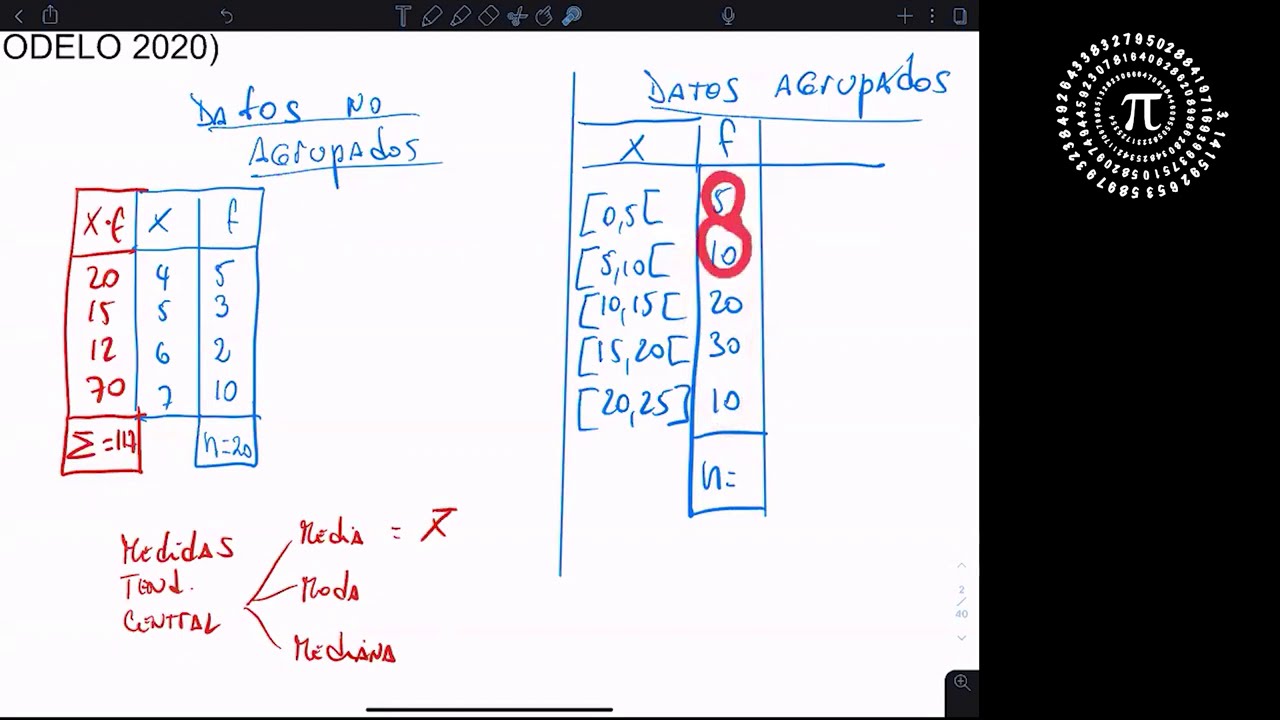 ODELO 2020)
DATOS NO
AGRUPADOS
X·f X f
20 4 5
15 5 3
12 6 2
70 7 10
Σ=117 n=20
MEDIDAS
TEND.
CENTRAL
MEDIA = X̄
MODA
MEDIANA
DATOS AGRUPADOS
X f
[0,5[ 5
[5,10[ 10
[10,15[ 20
[15,20[ 30
[20,25] 10
n=
2
/
40
π